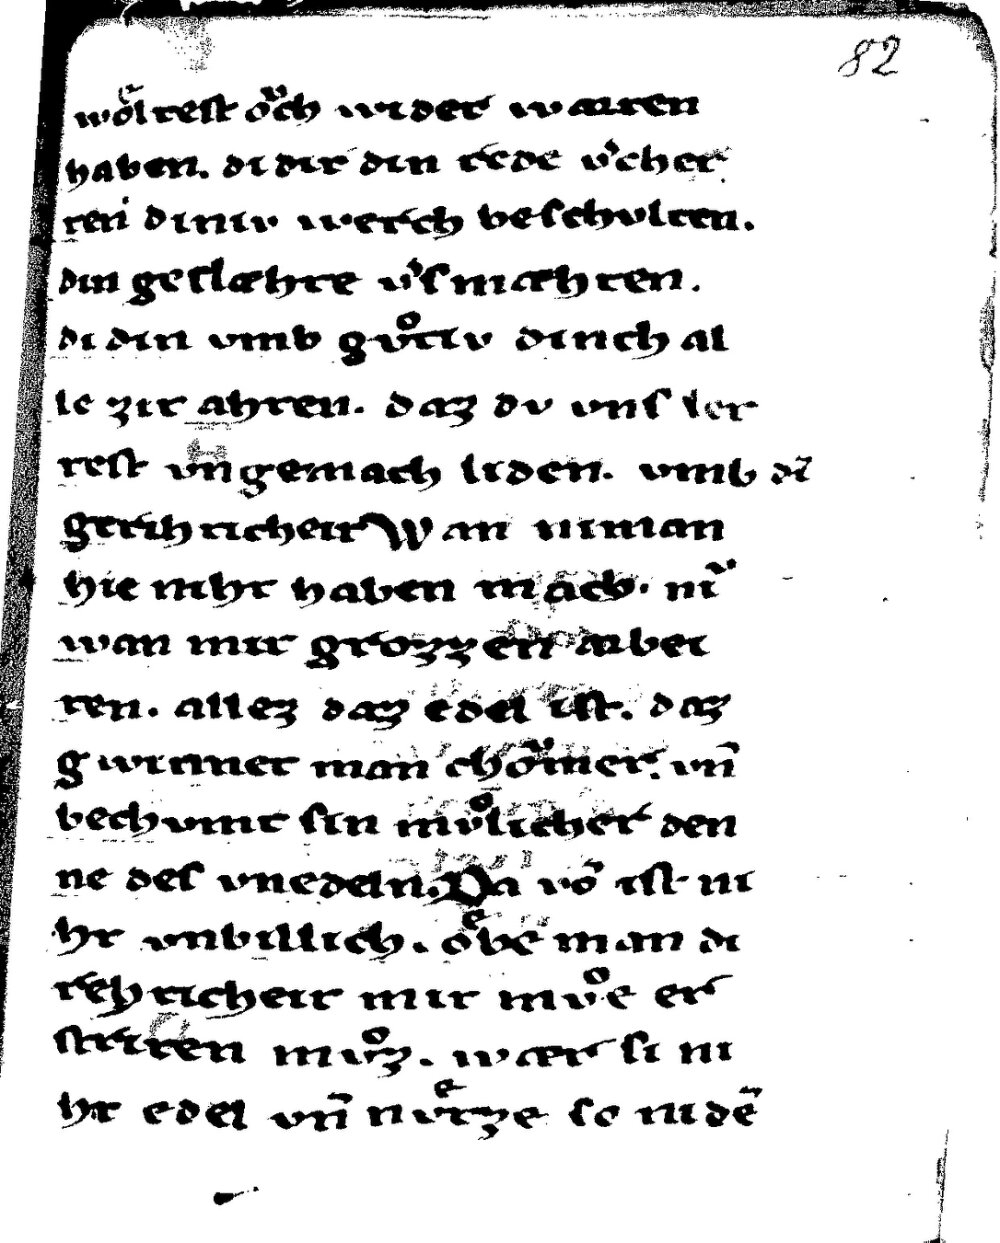 82
woͤltest oͮch wider warten
haben. di dir din rede v͛cher
ten diniv werch beschvlten.
din geslæhte v͛smæhten.
di din vmb gvͦtiv dinch al
le zit ahten. daz dv vns ler
test vngemach liden. vmb di
gerihticheit Wan niman
hie niht haben mach. niͮ
wan mit grozzen arbei
ten. allez daz edel ist. daz
gwinnet man choͮmer. vn̄
bechvmt sin mvͦlicher den
ne des vnedeln. Da vō ist ni
ht vnbillich. oͤbe man di
rehticheit mit mvͦe er
striten mvͦz. wær si ni
ht edel vn̄ nvͤtze so nidē